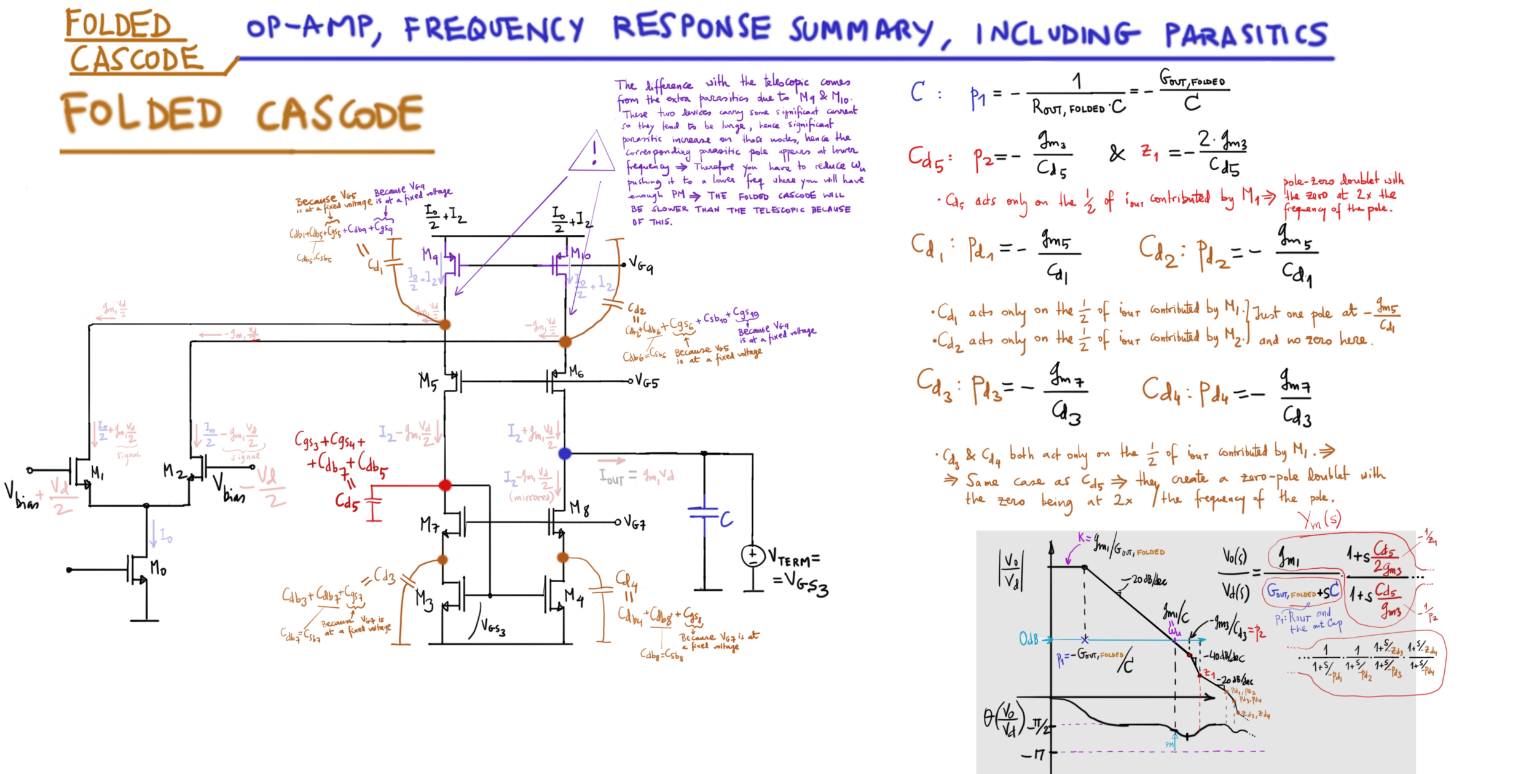 FOLDED
CASCODE
OP-AMP, FREQUENCY RESPONSE SUMMARY, INCLUDING PARASITICS
FOLDED CASCODE
The difference with the telescopic comes
from the extra parasitics due to M9 & M10.
These two devices carry some significant current
so they tend to be large, hence significant
parasitic increase on those nodes, hence the
corresponding parasitic pole appears at lower
frequency ⇒ Therefore you have to reduce ωu
pushing it to a lower freq where you will have
enough PM ⇒ THE FOLDED CASCODE WILL
BE SLOWER THAN THE TELESCOPIC BECAUSE
OF THIS.
!
Because VG5
is at a fixed voltage
Because VG9
is at a fixed voltage
Cdb1+Cdb5+Cgs5+Cdb9+Cgs9
Cdb5=Csb5
= Cd1
I0/2+I2
I0/2+I2
M9
M10
VG9
I0/2+I2
I0/2+I2
gm1 Vd/2
gm1 Vd/2
-gm1 Vd/2
-gm1 Vd/2
Cd2
=
Cdb2+Cdb6+Cgs6+Csb10+Cgs10
Cdb6=Csb6
Because VG5
is at a fixed voltage
Because VG9
is at a fixed voltage
M5
M6
VG5
I0/2+gm1 Vd/2
signal
I0/2-gm1 Vd/2
signal
I2-gm1 Vd/2
I2+gm1 Vd/2
M1
M2
Vbias+Vd/2
Vbias-Vd/2
I0
M0
Cgs3+Cgs4+
+Cdb7+Cdb5
=
Cd5
I2-gm1 Vd/2
(mirrored)
IOUT=gm1Vd
C
M7
M8
VG7
VTERM=
=VGS3
M3
M4
VGS3
Cdb3+Cdb7+Cgs7=Cd3
Cdb7=Csb7
Because VG7 is
at a fixed voltage
Cd4
=
Cdb4+Cdb8+Cgs8
Cdb8=Csb8
Because VG7 is at
a fixed voltage
C: p1=-1/(ROUT,FOLDED·C)=-GOUT,FOLDED/C
Cd5: p2=-gm3/Cd5 & z1=-2·gm3/Cd5
· Cd5 acts only on the 1/2 of iOUT contributed by M1 ⇒ pole-zero doublet with
the zero at 2x the
frequency of the pole.
Cd1: pd1=-gm5/Cd1 Cd2: pd2=-gm5/Cd1
· Cd1 acts only on the 1/2 of iOUT contributed by M1. } Just one pole at -gm5/Cd1
· Cd2 acts only on the 1/2 of iOUT contributed by M2. } and no zero here.
Cd3: pd3=-gm7/Cd3 Cd4: pd4=-gm7/Cd3
· Cd3 & Cd4 both act only on the 1/2 of iOUT contributed by M1. ⇒
⇒ Same case as Cd5 ⇒ they create a zero-pole doublet with
the zero being at 2x the frequency of the pole.
|Vo/Vd|
K=gm1/GOUT,FOLDED
-20dB/dec
gm1/C
=
ωu
-gm3/Cd3=p2
0dB
p1=-GOUT,FOLDED/C
-40dB/dec
z1
-20dB/dec
pd1,pd2
pd3,pd4
zd3,zd4
θ(Vo/Vd)
-π/2
-π
PM
Ym(s)
Vo(s)/Vd(s)=gm1/(GOUT,FOLDED+sC)·(1+s Cd5/2gm3)/(1+s Cd5/gm3)...
-1/z1
-1/p2
p1: ROUT and
the out Cap
...1/(1+s/-pd1)·1/(1+s/-pd2)·(1+s/-zd3)/(1+s/-pd3)·(1+s/-zd4)/(1+s/-pd4)